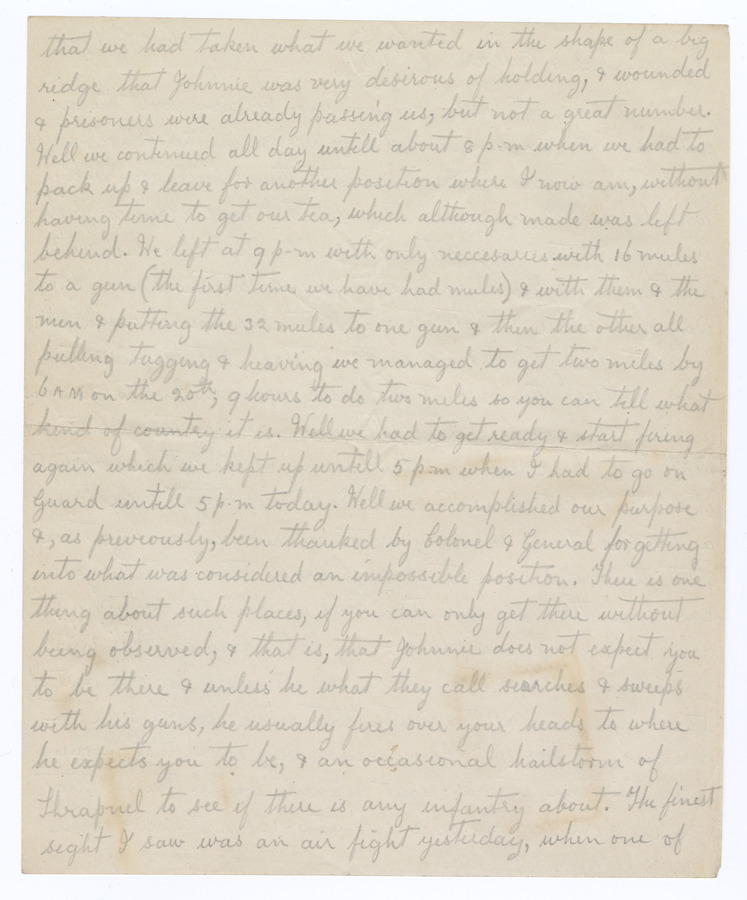 that we had taken what we wanted in the shape of a big
ridge that Johnnie was very desirous of holding, & wounded
& prisoners were already passing us, but not a great number.
Well we continued all day untill about 8 p-m when we had to
pack up & leave for another position where I now am, without
having time to get our tea, which although made was left
behind. We left at 9 p-m with only neccesaries with 16 mules
to a gun (the first time we have had mules) & with them & the
men & putting the 32 mules to one gun & then the other all
pulling tugging & heaving we managed to get two miles by
6 AM on the 20th; 9 hours to do two miles so you can tell what
kind of country it is. Well we had to get ready & start firing
again which we kept up untill 5 p.m when I had to go on
Guard untill 5 p.m today. Well we accomplished our purpose
&, as previously, been thanked by Colonel & General for getting
into what was considered an impossible position. There is one
thing about such places, if you can only get there without
being observed, & that is, that Johnnie does not expect you
to be there & unless he what they call searches & sweeps
with his guns, he usually fires over your heads to where
he expects you to be, & an occasional hailstorm of
Shrapnel to see if there is any infantry about. The finest
sight I saw was an air fight yesterday, when one of